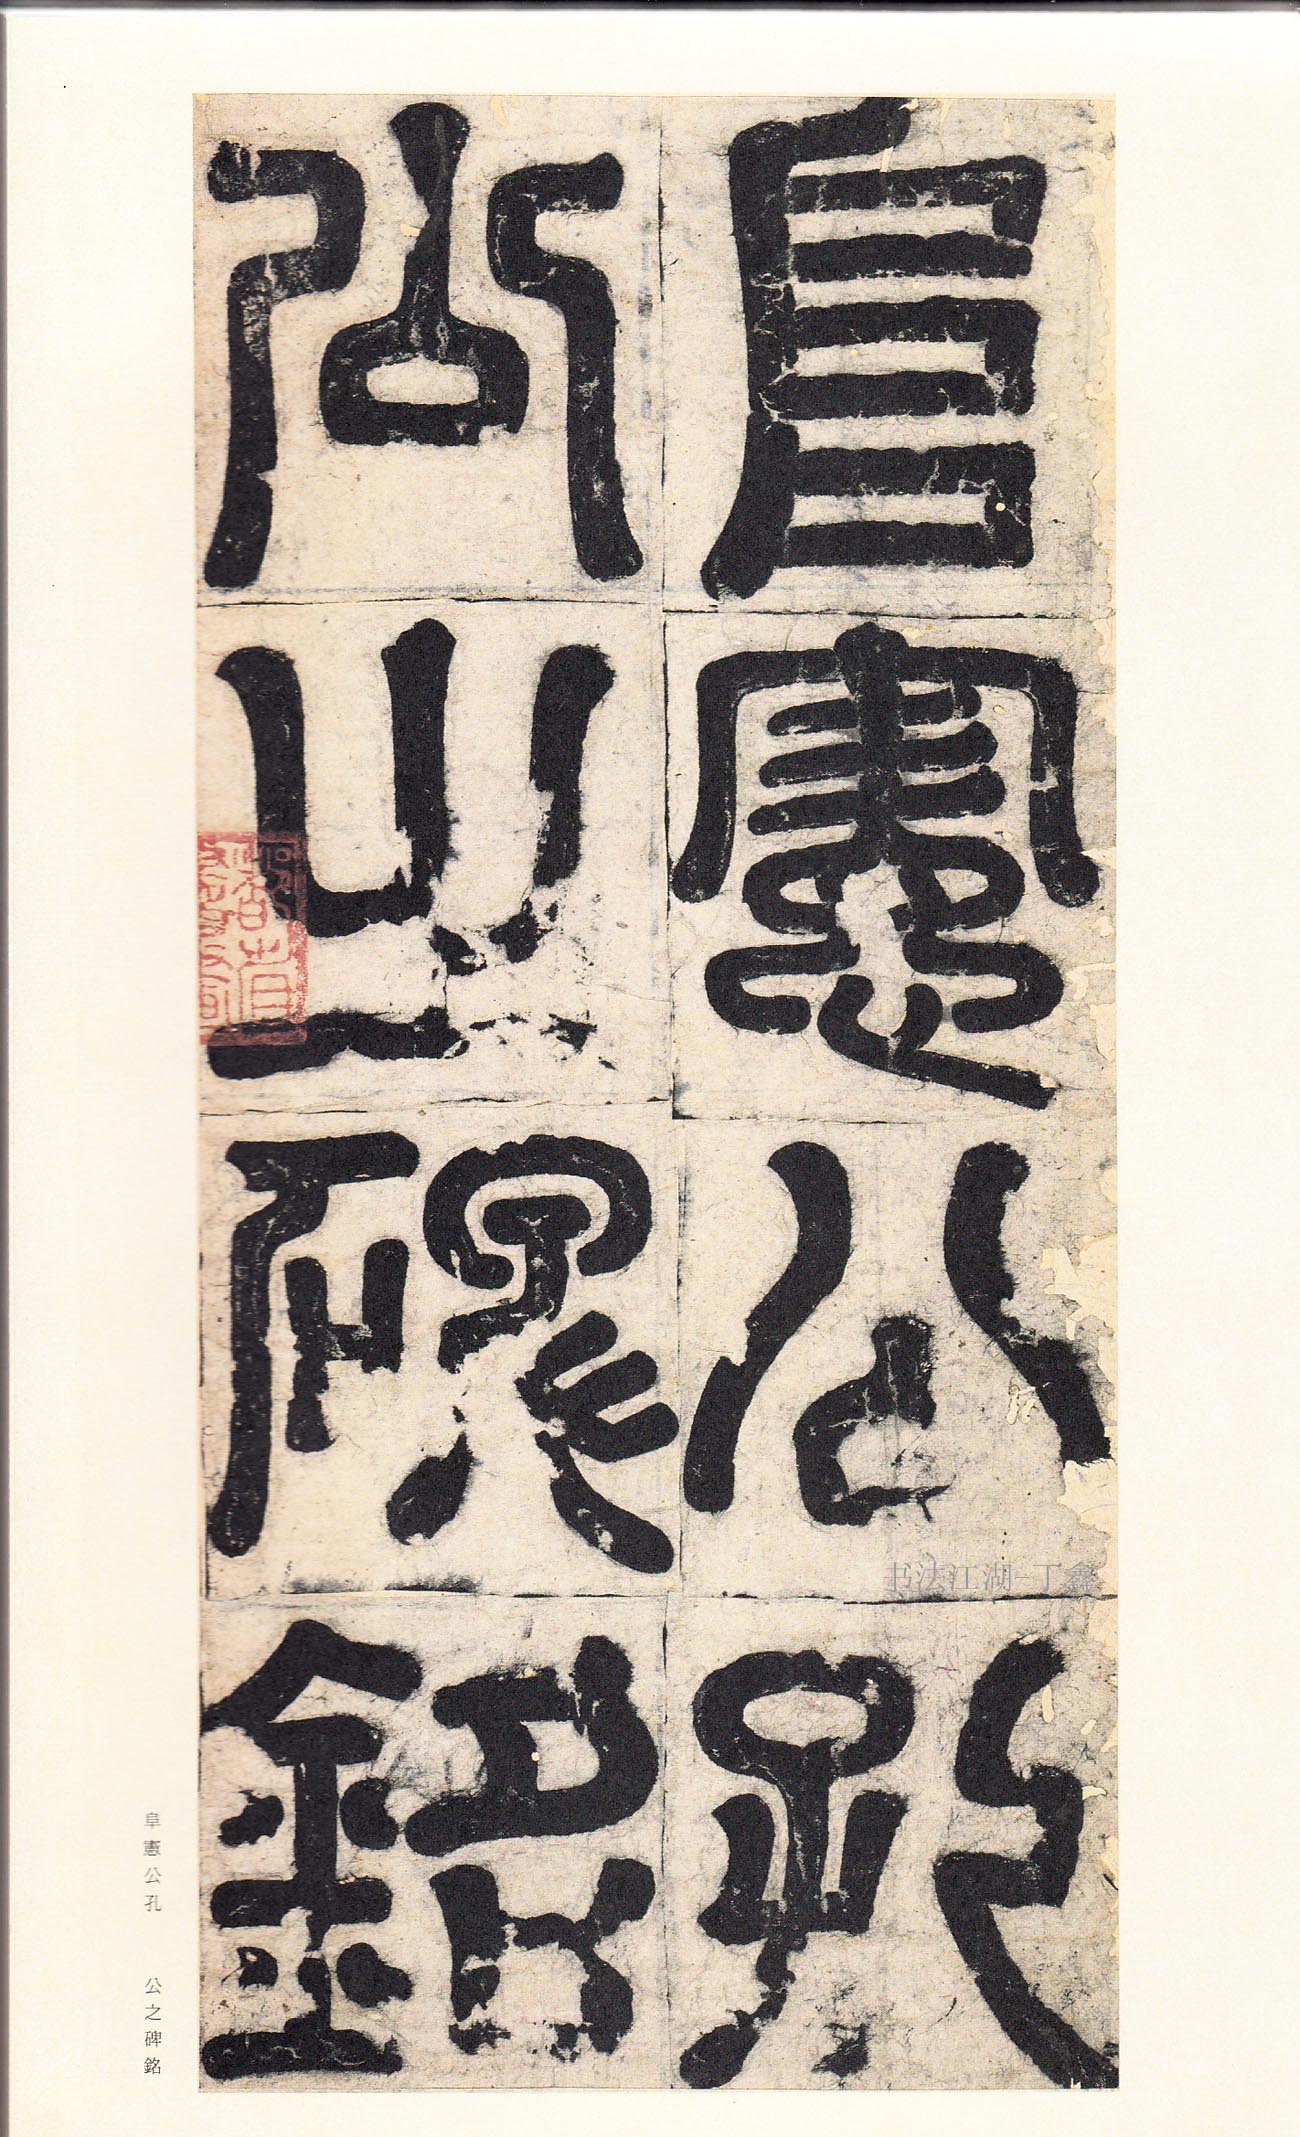 阜憲公孔
公之碑銘
书法江湖-丁鑫
阜憲公孔 公之碑銘